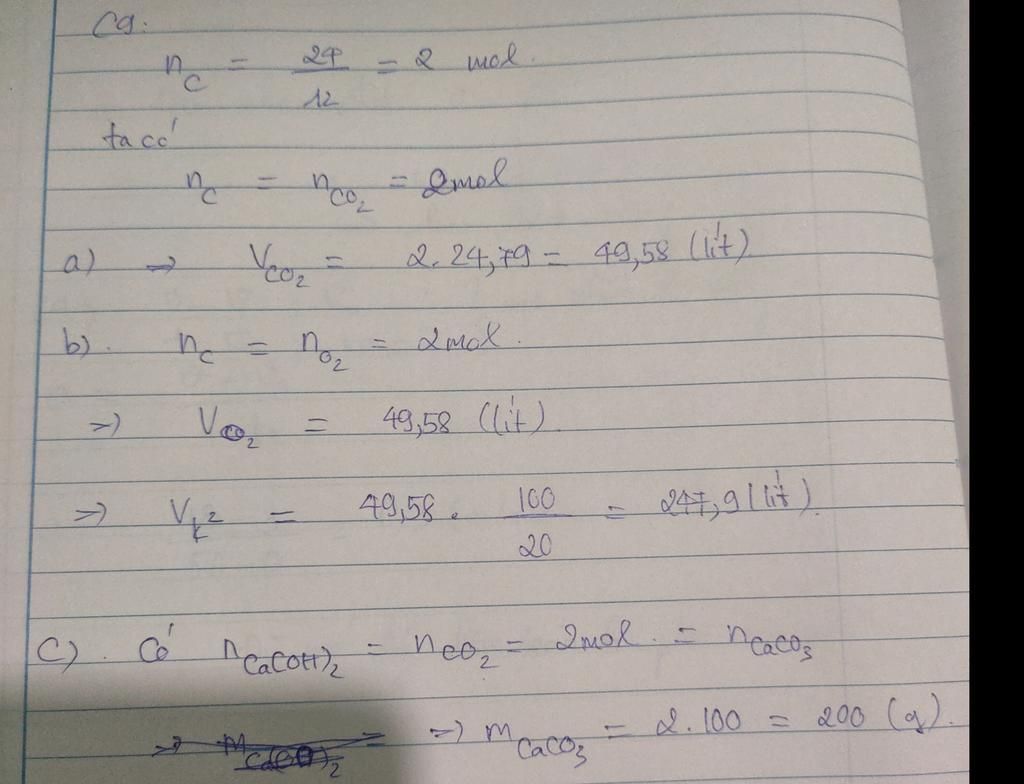 C9.
n_C = 24/12 = 2 mol.
ta có
n_C = n_CO₂ = 2mol
a) => V_CO₂ = 2. 24,79 = 49,58 (lít)
b). n_C = n_O₂ = 2mol.
=) V_O₂ = 49,58 (lít).
=) V_k² = 49,58. 100/20 = 247,9 (lít).
C). Có n_Ca(OH)₂ = n_CO₂ = 2mol. = n_CaCO₃
=) m_CaCO₃ = 2.100 = 200 (g).